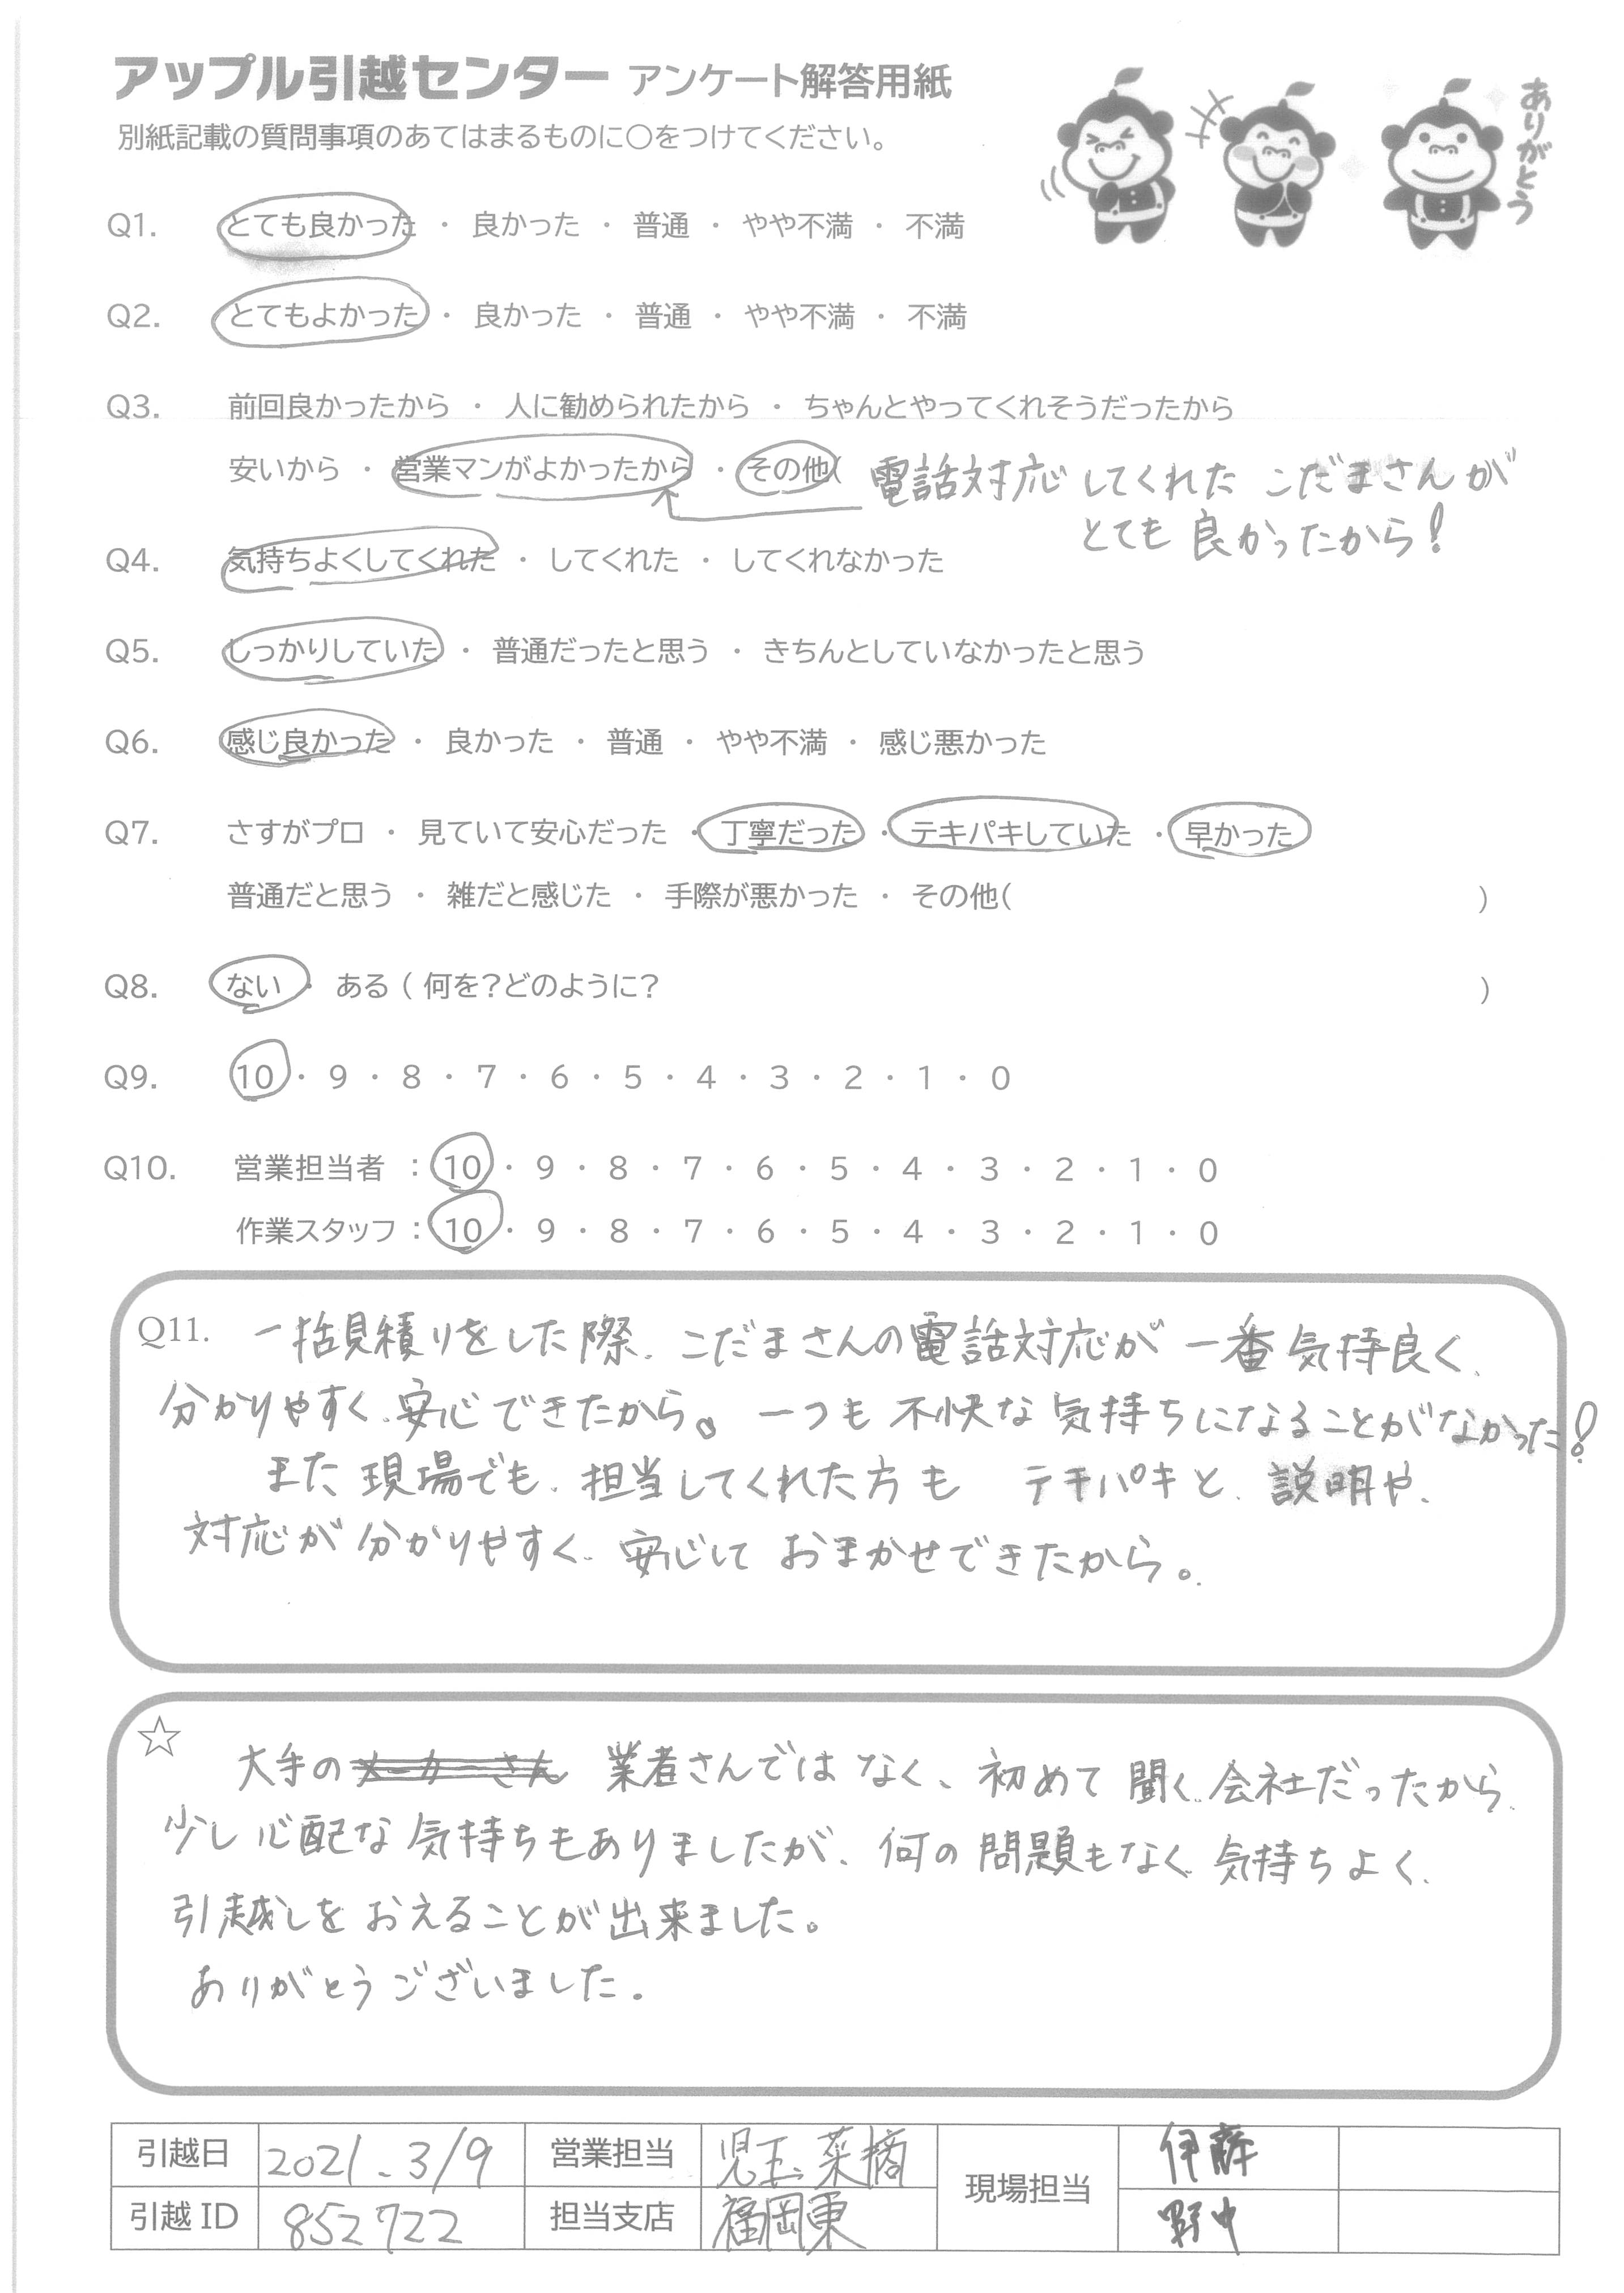 アップル引越センター アンケート解答用紙
ありがとう
別紙記載の質問事項のあてはまるものに○をつけてください。
Q1. とても良かった ・ 良かった ・ 普通 ・ やや不満 ・ 不満
Q2. とてもよかった ・ 良かった ・ 普通 ・ やや不満 ・ 不満
Q3. 前回良かったから ・ 人に勧められたから ・ ちゃんとやってくれそうだったから
安いから ・ 営業マンがよかったから ・ その他( 電話対応してくれた こだまさんが
とても良かったから!
Q4. 気持ちよくしてくれた ・ してくれた ・ してくれなかった
Q5. しっかりしていた ・ 普通だったと思う ・ きちんとしていなかったと思う
Q6. 感じ良かった ・ 良かった ・ 普通 ・ やや不満 ・ 感じ悪かった
Q7. さすがプロ ・ 見ていて安心だった ・ 丁寧だった ・ テキパキしていた ・ 早かった
普通だと思う ・ 雑だと感じた ・ 手際が悪かった ・ その他( )
Q8. ない ・ ある ( 何を?どのように? )
Q9. 10 ・ 9 ・ 8 ・ 7 ・ 6 ・ 5 ・ 4 ・ 3 ・ 2 ・ 1 ・ 0
Q10. 営業担当者 : 10 ・ 9 ・ 8 ・ 7 ・ 6 ・ 5 ・ 4 ・ 3 ・ 2 ・ 1 ・ 0
作業スタッフ : 10 ・ 9 ・ 8 ・ 7 ・ 6 ・ 5 ・ 4 ・ 3 ・ 2 ・ 1 ・ 0
Q11. 一括見積りをした際、こだまさんの電話対応が 一番気持良く、
分かりやすく、安心できたから。一つも不快な気持ちになることがなかった!
また現場でも、担当してくれた方も テキパキと、説明や、
対応が分かりやすく、安心して おまかせできたから。
☆ 大手のメーカーさん 業者さんではなく、初めて聞く会社だったから、
少し心配な気持ちもありましたが、何の問題もなく、気持ちよく、
引越しをおえることが出来ました。
ありがとうございました。
引越日 2021.3/9 営業担当 児玉 菜摘 現場担当 伊藤
引越ID 852722 担当支店 福岡東 野中